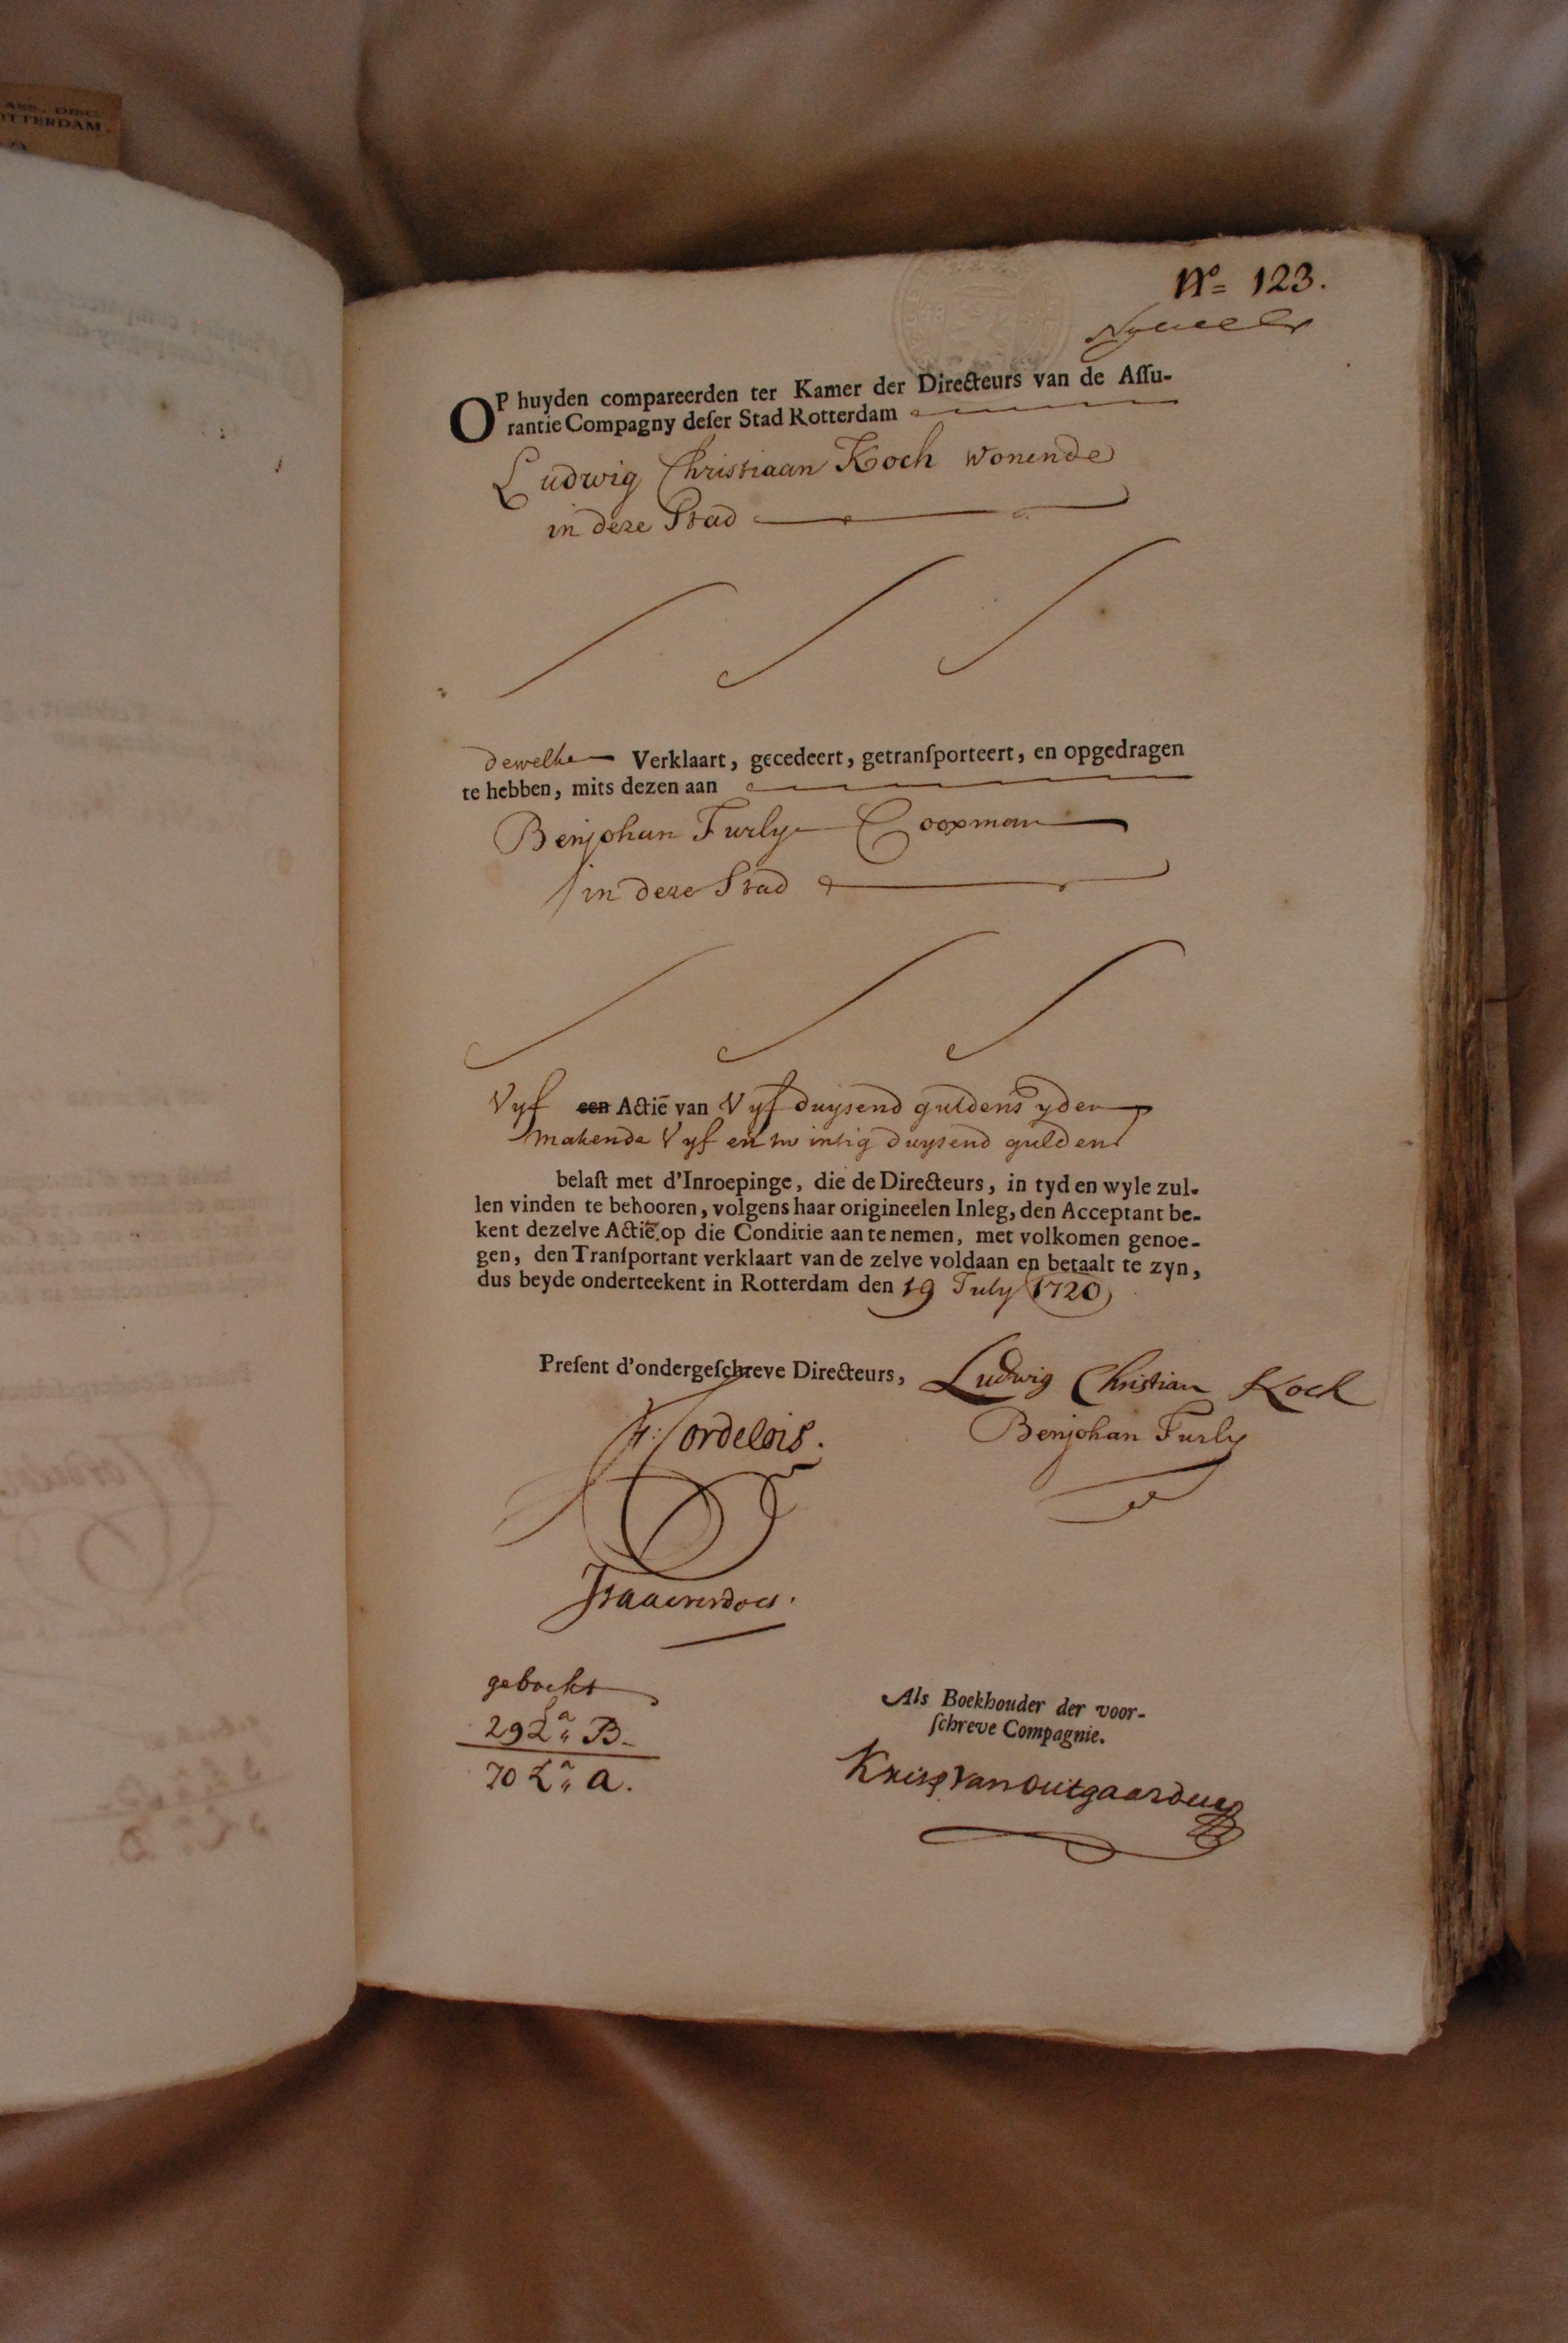 ASS. DISC.
OTTERDAM.
Nº= 123.
OP huyden compareerden ter Kamer der Directeurs van de Aſſu-
rantie Compagny deſer Stad Rotterdam
Ludwig Christiaan Koch wonende
in deze Stad
dewelke Verklaart, gecedeert, getranſporteert, en opgedragen
te hebben, mits dezen aan
Benjohan Furly Coopman
in deze Stad
Vyf een Actiē van Vyf duysend guldens yder
makende Vyf en twintig duysend gulden
belaſt met d'Inroepinge, die de Directeurs, in tyd en wyle zul-
len vinden te behooren, volgens haar origineelen Inleg, den Acceptant be-
kent dezelve Actiē op die Conditie aan te nemen, met volkomen genoe-
gen, den Tranſportant verklaart van de zelve voldaan en betaalt te zyn,
dus beyde onderteekent in Rotterdam den 19 July 1720
Preſent d'ondergeſchreve Directeurs,
Ludwig Christian Koch
Benjohan Furly
geboekt
29 Lª B.
70 Lª a.
Als Boekhouder der voor-
ſchreve Compagnie.